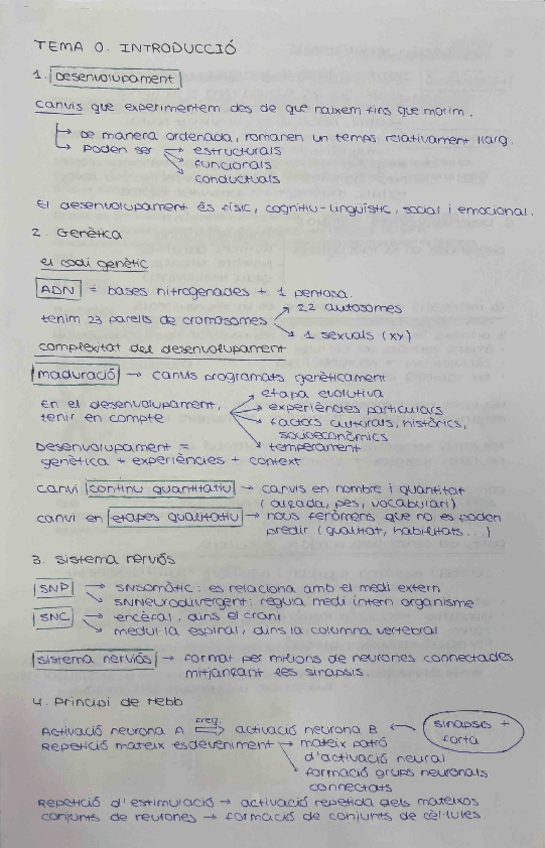 TEMA 0. INTRODUCCIÓ
1. Desenvolupament
canvis que experimentem des de que naixem fins que morim.
↳ De manera ordenada, romanen un temps relativament llarg.
↳ poden ser → estructurals
→ funcionals
→ conductuals
El desenvolupament és físic, cognitiu-lingüístic, social i emocional.
2. Genètica
el codi genètic
ADN = bases nitrogenades + 1 pentosa.
tenim 23 parells de cromosomes → 22 autosomes
→ 1 sexuals (xy)
complexitat del desenvolupament
maduració → canvis programats genèticament
En el desenvolupament, tenir en compte → etapa evolutiva
→ experiències particulars
→ factors culturals, històrics, socioeconòmics
→ temperament
Desenvolupament =
genètica + experiències + context
canvi continu quantitatiu → canvis en nombre i quantitat
(alçada, pes, vocabulari)
canvi en etapes qualitatiu → nous fenòmens que no es poden
predir (qualitat, habilitats...)
3. Sistema nerviós
SNP → SNSomàtic: es relaciona amb el medi extern
→ SNNeurodivergent: regula medi intern organisme
SNC → encèfal, dins el crani
→ medul·la espinal, dins la columna vertebral
sistema nerviós → format per milions de neurones connectades
mitjançant les sinapsis.
4. Principi de Hebb
Activació neurona A freq. ⇒ activació neurona B ← sinapsis + forta
Repetició mateix esdeveniment → mateix patró
d'activació neural
→ formació grups neuronals
connectats
Repetició d'estimulació → activació repetida dels mateixos
conjunts de neurones → formació de conjunts de cèl·lules.